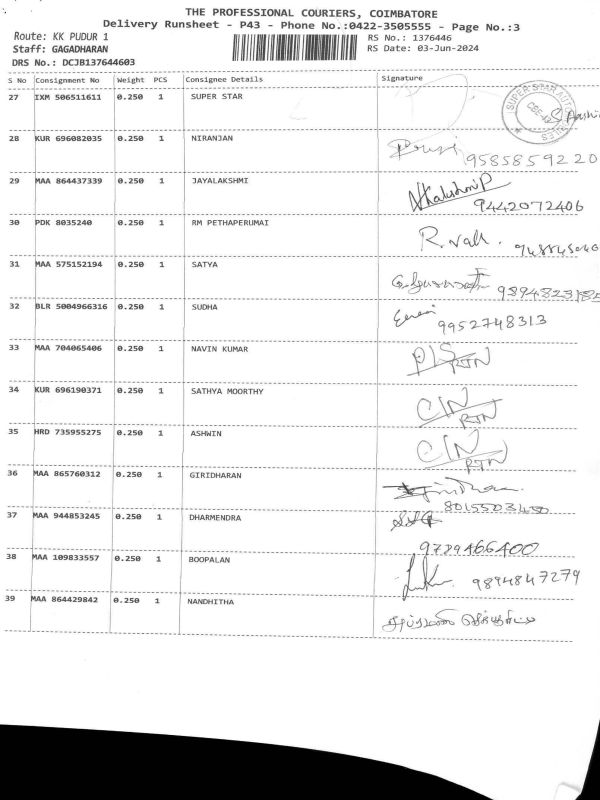 THE PROFESSIONAL COURIERS, COIMBATORE
Delivery Runsheet - P43 - Phone No.:0422-3505555 - Page No.:3
Route: KK PUDUR 1
RS No.: 1376446
Staff: GAGADHARAN
RS Date: 03-Jun-2024
DRS No.: DCJB137644603
S No Consignment No Weight PCS Consignee Details Signature
27 IXM 506511611 0.250 1 SUPER STAR
SUPER STAR AUTO
28 KUR 696082035 0.250 1 NIRANJAN
9585859220
29 MAA 864437339 0.250 1 JAYALAKSHMI
9442072406
30 PDK 8035240 0.250 1 RM PETHAPERUMAI
R. Valli.
31 MAA 575152194 0.250 1 SATYA
9894823185
32 BLR 5004966316 0.250 1 SUDHA
9952748313
33 MAA 704065406 0.250 1 NAVIN KUMAR
RTN
34 KUR 696190371 0.250 1 SATHYA MOORTHY
C/N
RTN
35 HRD 735955275 0.250 1 ASHWIN
C/N
RTN
36 MAA 865760312 0.250 1 GIRIDHARAN
37 MAA 944853245 0.250 1 DHARMENDRA
9789466400
38 MAA 109833557 0.250 1 BOOPALAN
9894847279
39 MAA 864429842 0.250 1 NANDHITHA